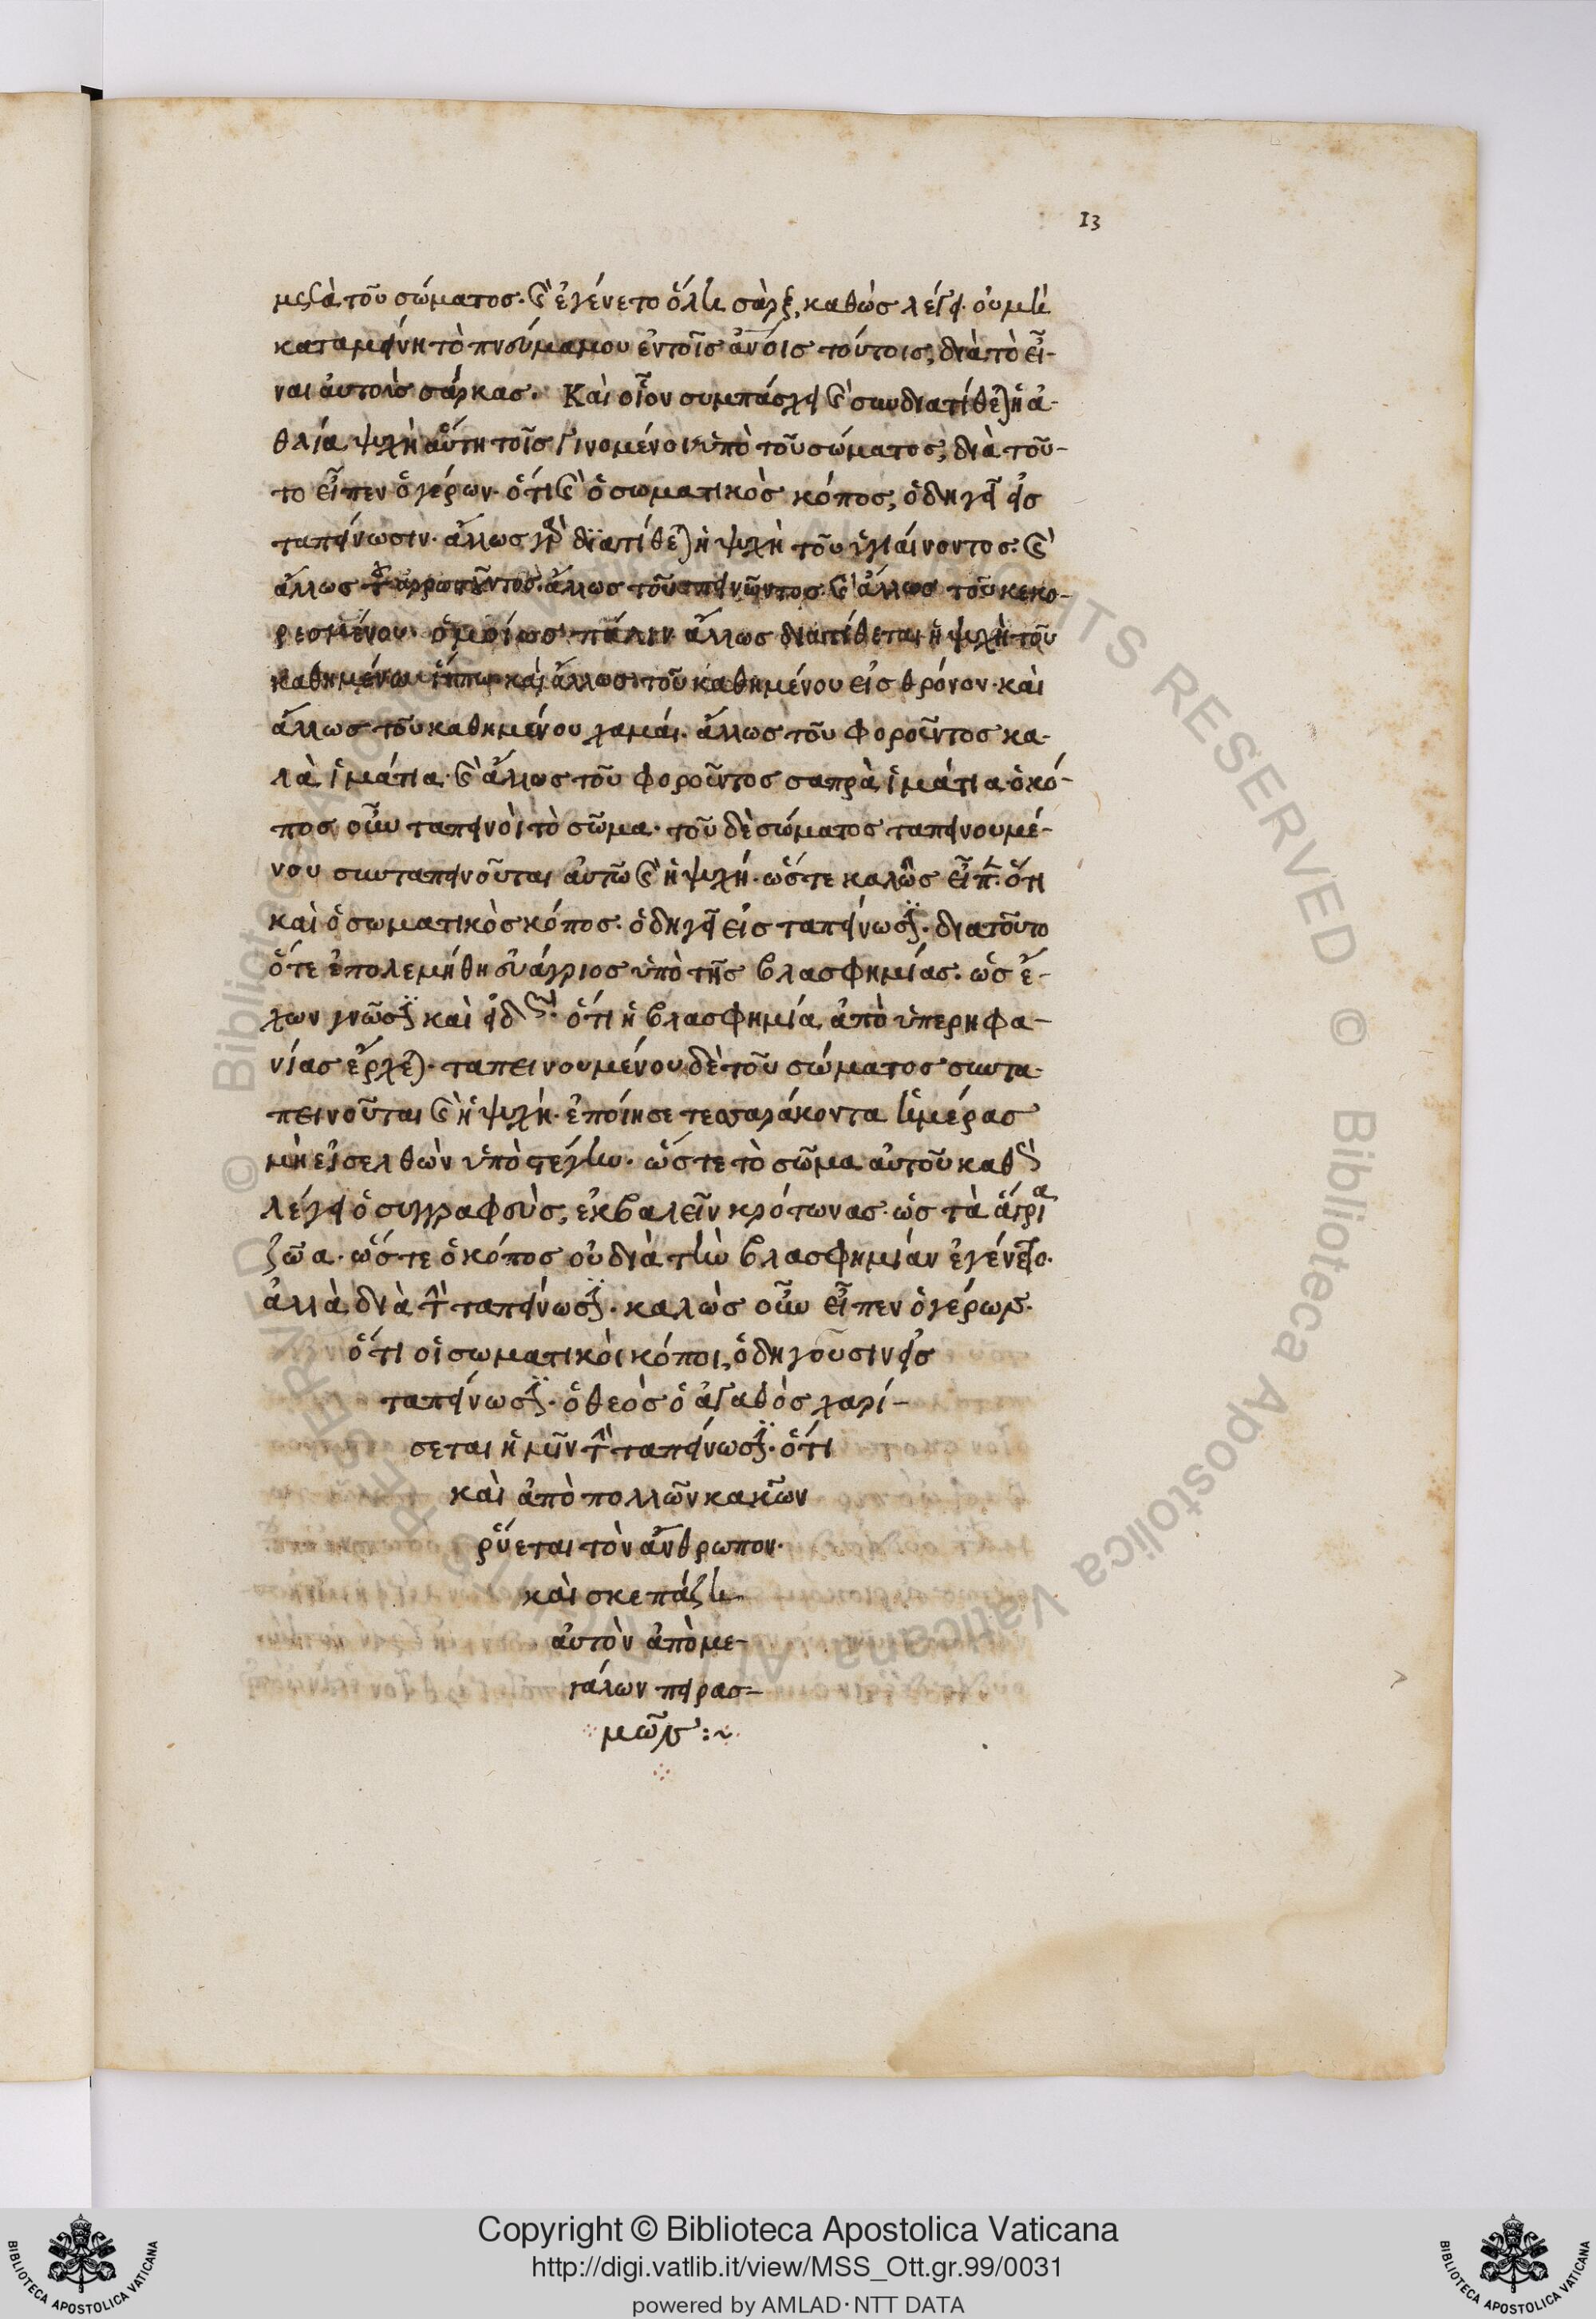 13
μετὰ τοῦ σώματος. καὶ ἐγένετο ὅλη σὰρξ, καθὼς λέγει. οὐ μὴ
καταμείνη τὸ πνεύμα μου ἐν τοῖς ἀνοις τούτοις, διὰ τὸ εἶ-
ναι ἀυτοὺς σάρκας. Καὶ οἷον συμπάσχει καὶ συνδιατίθεται ἡ ἀ-
θλία ψυχὴ αὕτη τοῖς γινομένοις ὑπὸ τοῦ σώματος, διὰ τοῦ-
το εἶπεν ὁ γέρων. ὅτι καὶ ὁ σωματικὸς κόπος, ὁδηγεῖ εἰς
ταπείνωσιν. ἄλλως γὰρ διατίθεται ἡ ψυχὴ τοῦ ὑγιαίνοντος. καὶ
ἄλλως τοῦ ἀρρωστοῦντος. ἄλλως τοῦ πεινῶντος. καὶ ἄλλως τοῦ κεκο-
ρεσμένου. ὁμοίως πάλιν ἄλλως διατίθεται ἡ ψυχὴ τοῦ
καθημένου ἵππω καὶ ἄλλως τοῦ καθημένου εἰς θρόνον. καὶ
ἄλλως τοῦ καθημένου χαμάι. ἄλλως τοῦ φοροῦντος κα-
λὰ ἱμάτια. καὶ ἄλλως τοῦ φοροῦντος σαπρὰ ἱμάτια. ὁ κό-
πος οὖν ταπεινὸι τὸ σῶμα. τοῦ δὲ σώματος ταπεινουμέ-
νου συνταπεινοῦται αὐτῶ καὶ ἡ ψυχή. ὥστε καλῶς εἶπεν. ὅτι
καὶ ὁ σωματικὸς κόπος. ὁδηγεῖ εἰς ταπείνωσιν. διατοῦτο
ὅτε ἐπολεμήθη εὐάγριος ὑπὸ τῆς βλασφημίας. ὡς ἔ-
χων γνῶσιν καὶ εἰδὼς. ὅτι ἡ βλασφημία ἀπὸ ὑπερηφα-
νίας ἔρχεται. ταπεινουμένου δὲ τοῦ σώματος συντα-
πεινοῦται καὶ ἡ ψυχή. ἐποίησε τεσσαράκοντα ἡμέρας
μὴ εἰσελθὼν ὑπὸ στέγην. ὥστε τὸ σῶμα αὐτοῦ καθὼς
λέγει ὁ συγγραφεὺς, ἐκβαλεῖν κρότωνας. ὡς τὰ ἄγρια
ζῶα. ὥστε ὁ κόπος οὐ διὰ τὴν βλασφημίαν ἐγένετο.
ἀλλὰ διὰ τὴν ταπείνωσιν. καλῶς οὖν εἶπεν ὁ γέρων.
ὅτι οἱ σωματικὸι κόποι, ὁδηγοῦσιν εἰς
ταπείνωσιν. ὁ θεὸς ὁ ἀγαθὸς χαρί-
σεται ἡμῖν τὴν ταπείνωσιν. ὅτι
καὶ ἀπὸ πολλῶν κακῶν
ῥύεται τὸν ἄνθρωπον.
καὶ σκεπάζη
αὐτὸν ἀπὸ με-
γάλων πειρασ-
μῶν :~
© Biblioteca Apostolica Vaticana
ALL RIGHTS RESERVED
Copyright © Biblioteca Apostolica Vaticana
http://digi.vatlib.it/view/MSS_Ott.gr.99/0031
powered by AMLAD·NTT DATA
BIBLIOTECA APOSTOLICA VATICANA
BIBLIOTECA APOSTOLICA VATICANA